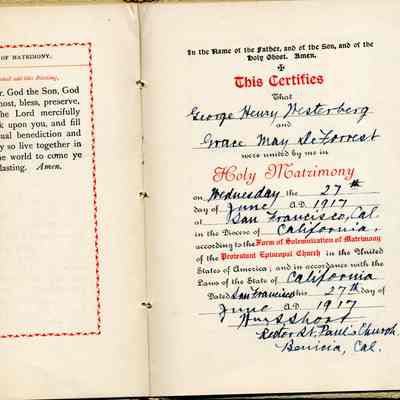 OF MATRIMONY.
add this Blessing.
r. God the Son, God
ost, bless, preserve,
he Lord mercifully
k upon you, and fill
ual benediction and
y so live together in
e world to come ye
lasting. Amen.
In the Name of the Father, and of the Son, and of the
Holy Ghost. Amen.
This Certifies
That
George Henry Vesterberg
and
Grace May DeForrest
were united by me in
Holy Matrimony
on Wednesday the 27th
day of June A.D. 1917
at San Francisco, Cal.
in the Diocese of California,
according to the Form of Solemnization of Matrimony
of the Protestant Episcopal Church in the United
States of America; and in accordance with the
Laws of the State of California
Dated San Francisco this 27th day of
June A.D. 1917
Rector St. Paul's Church
Benicia, Cal.